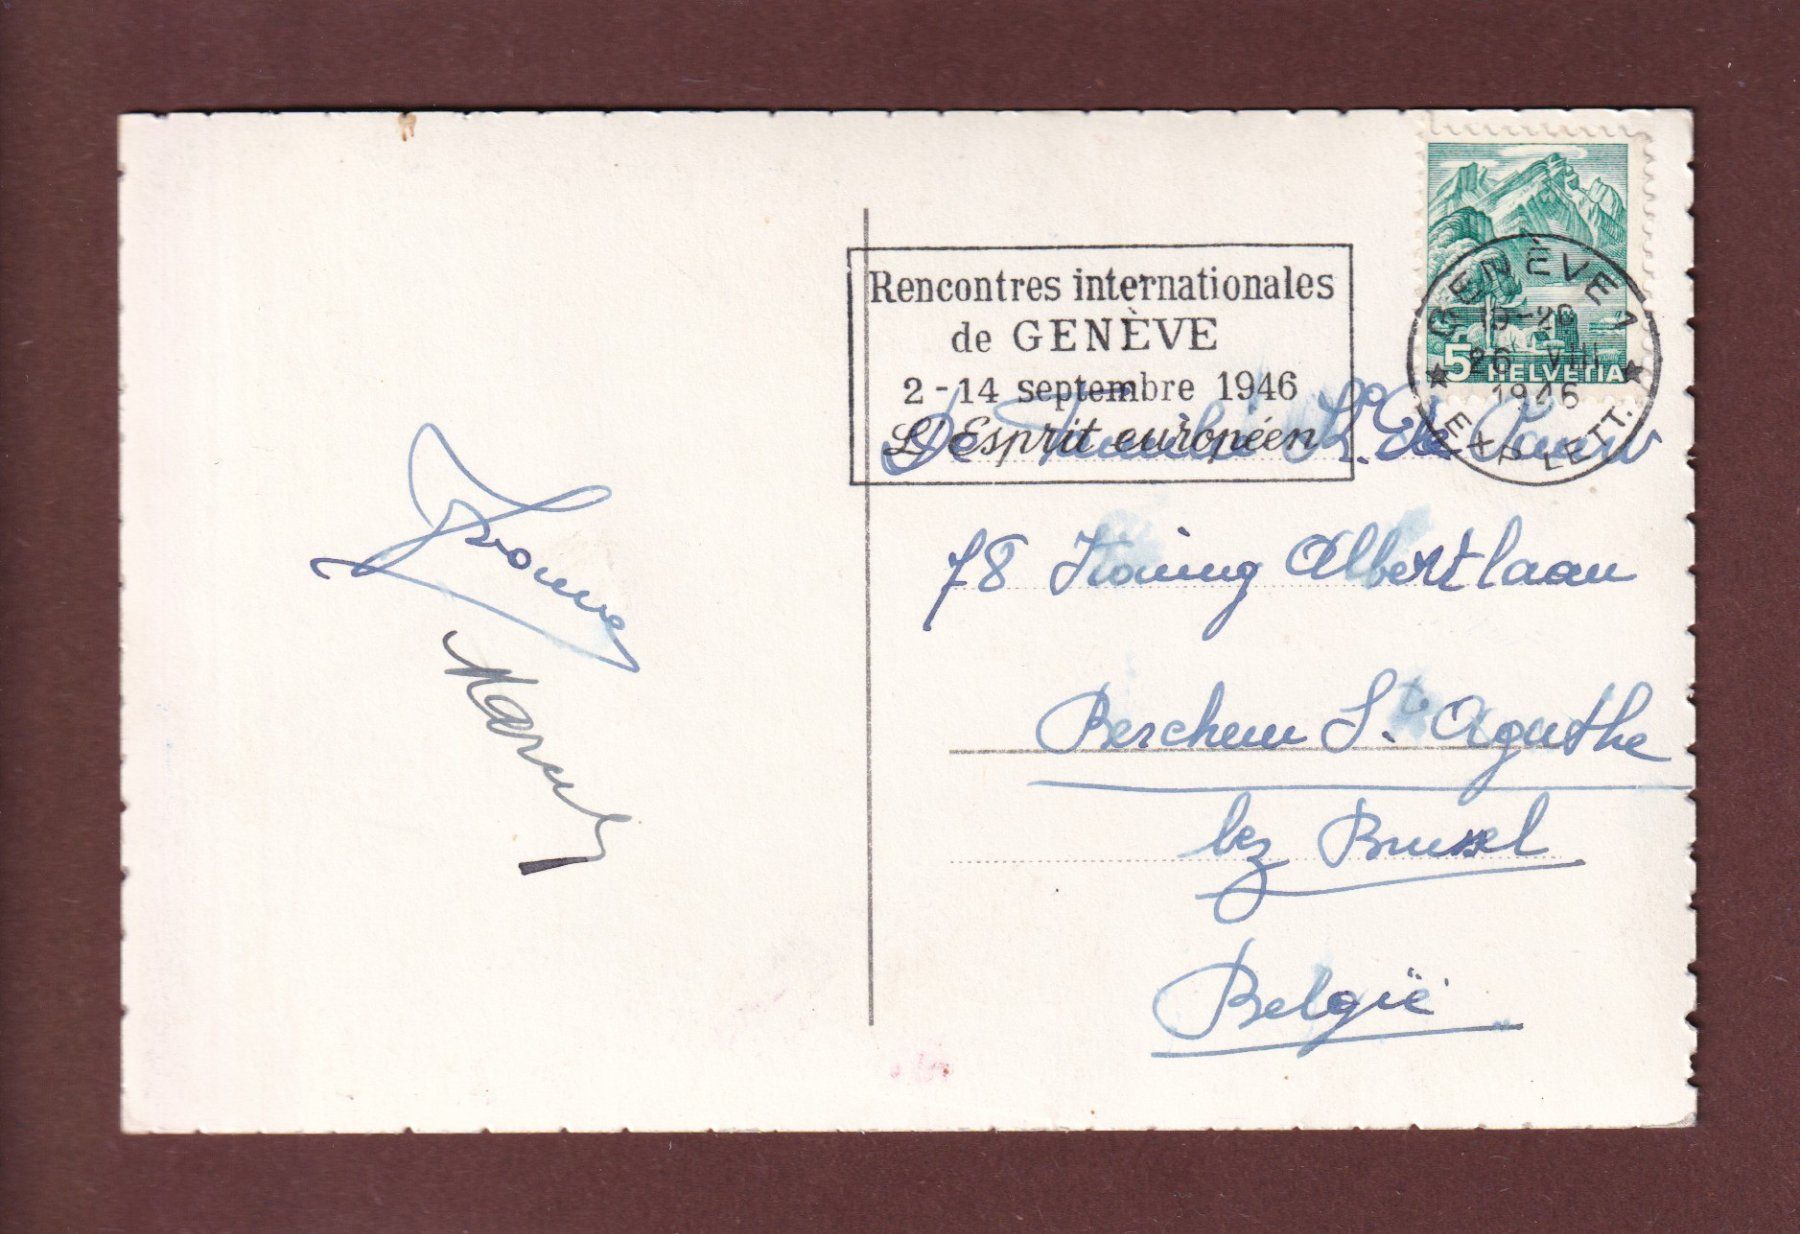 Rencontres internationales
de GENÈVE
2-14 septembre 1946
L'Esprit européen
5 HELVETIA
GENÈVE 1
26 VIII
1946
EXP. LETT.
De Familie
78 Koning Albertlaan
Berchem St. Agathe
bez Brussel
België
Yvonne
Marcel